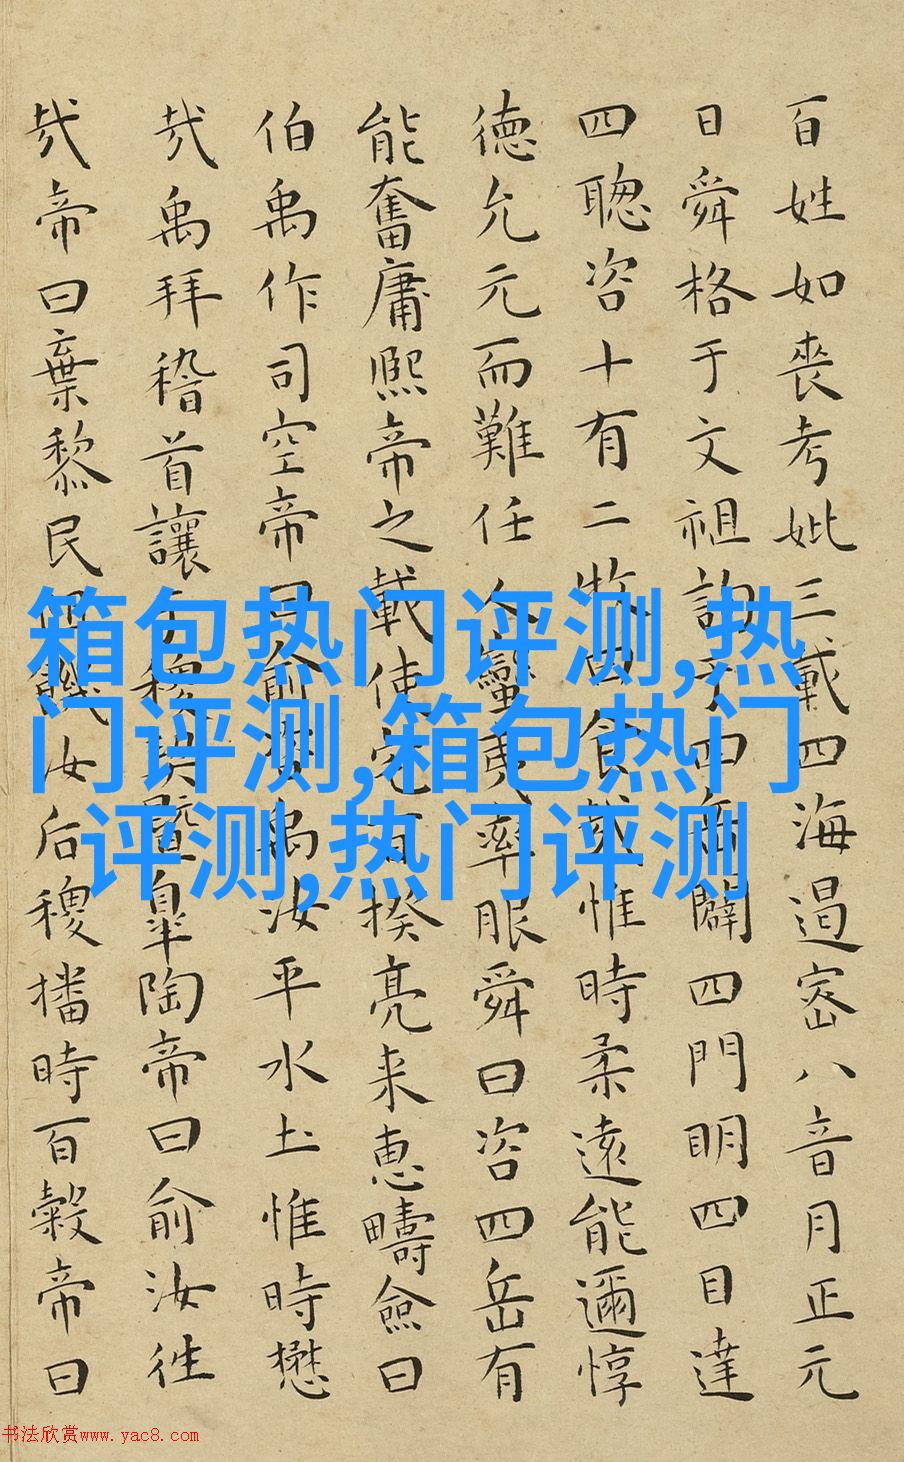 百姓如喪考妣三載四海遏密八音月正元
日舜格于文祖詢于四岳闢四門明四目達
四聦咨十有二牧曰食哉惟時柔遠能邇惇
德允元而難任人蠻夷率服舜曰咨四岳有
能奮庸熙帝之載使宅百揆亮采惠疇僉曰
伯禹作司空帝曰俞咨禹汝平水土惟時懋
哉禹拜稽首讓于稷契暨皐陶帝曰俞汝往
哉帝曰棄黎民阻飢汝后稷播時百穀帝曰
箱包热门评测,热
门评测,箱包热门
评测,热门评测
书法欣赏www.yac8.com